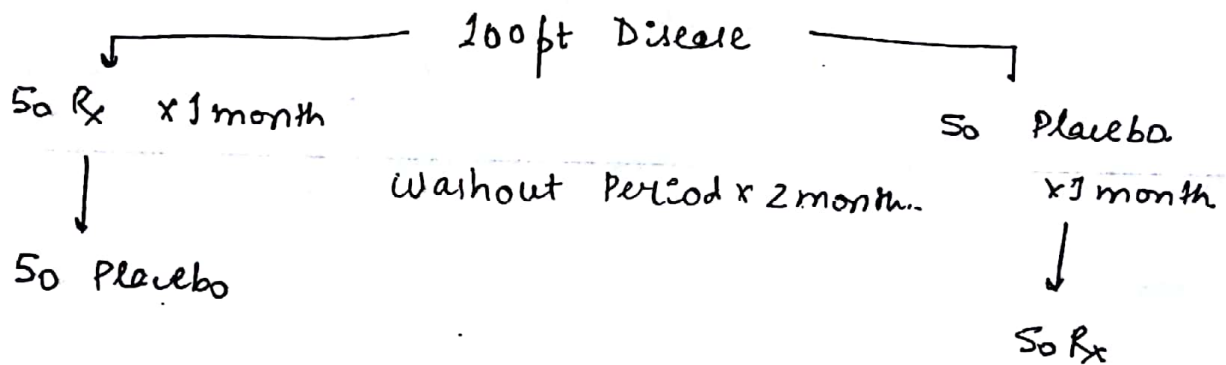 100 pt Disease
50 Rx x 1 month
50 Placebo
Washout Period x 2 month..
x 1 month
50 Placebo
50 Rx